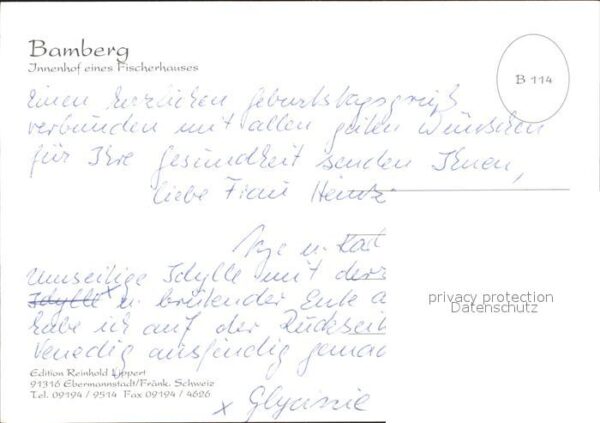 Bamberg
Innenhof eines Fischerhauses
B 114
Einen herzlichen Geburtstagsgruß
verbunden mit allen guten Wünschen
für Ihre Gesundheit senden Ihnen,
liebe Frau Heintz
u. Kat
Umseitige Idylle mit der
Idylle u. brütender Ente a
habe ich auf der Rückseit
Venedig ausfindig gemac
privacy protection
Datenschutz
Edition Reinhold Lippert
91316 Ebermannstadt/Fränk. Schweiz
Tel. 09194 / 9514 Fax 09194 / 4626
x Glyzinie